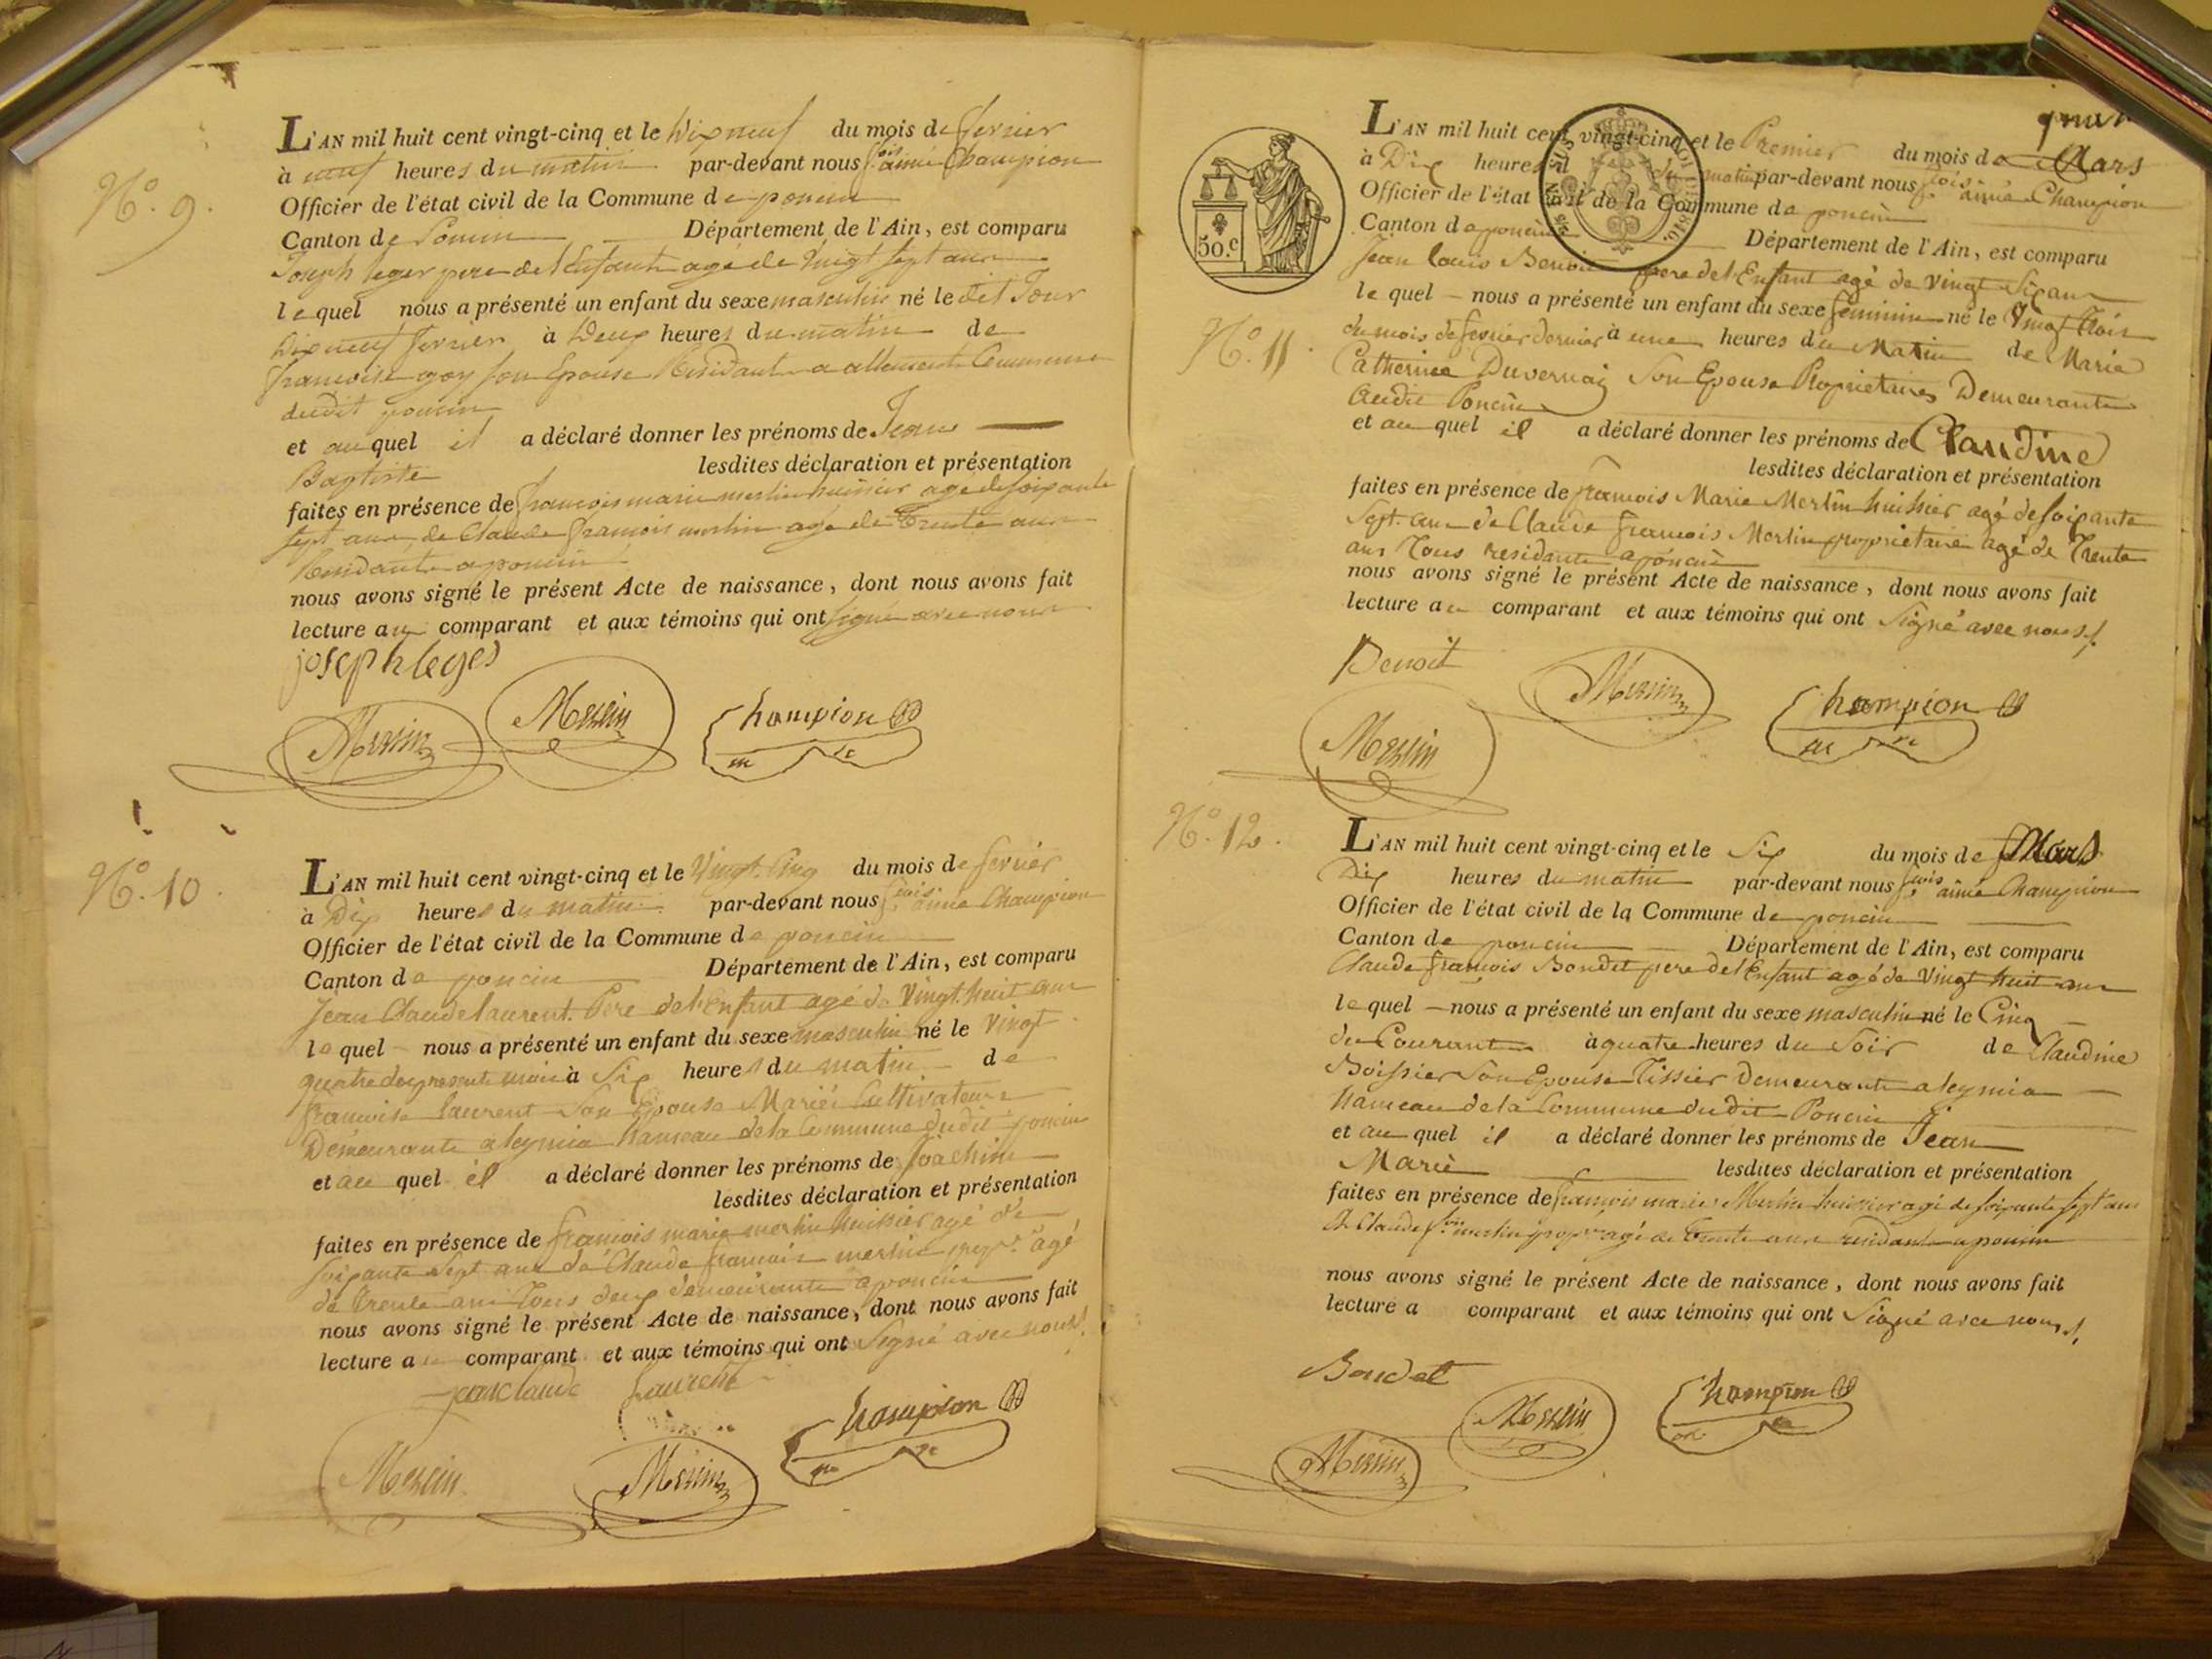 N.o 9.
L'AN mil huit cent vingt-cinq et le Dix neuf du mois de fevrier
à neuf heures du matin par-devant nous f.cois aimé Champion
Officier de l'état civil de la Commune de poncin
Canton de Poncin Département de l'Ain, est comparu
Joseph leger pere de l'enfant agé de Vingt sept ans
le quel nous a présenté un enfant du sexe masculin né le dit Jour
Dix neuf fevrier à Deux heures du matin de
francoise goy son Epouse Residant a allement Commune
dudit poncin
et auquel il a déclaré donner les prénoms de Jean
Baptiste lesdites déclaration et présentation
faites en présence de francois marie merlin huissier age de soixante
sept ans, de Claude francois merlin age de Trente ans
Residants a poncin
nous avons signé le présent Acte de naissance, dont nous avons fait
lecture au comparant et aux témoins qui ont signé avec nous
joseph leger
Merlin Merlin Champion
N.o 10.
L'AN mil huit cent vingt-cinq et le Vingt Cinq du mois de fevrier
à Dix heures du matin par-devant nous f.cois aimé Champion
Officier de l'état civil de la Commune de poncin
Canton de poncin Département de l'Ain, est comparu
Jean Claude laurent Pere de l'Enfant agé de Vingt huit ans
le quel nous a présenté un enfant du sexe masculin né le Vingt
quatre du present mois à Six heures du matin de
francoise laurent Son Epouse Mariés Cultivateurs
Demeurants a leymia hameau de la Commune dudit poncin
et au quel il a déclaré donner les prénoms de Joachim
lesdites déclaration et présentation
faites en présence de francois marie merlin huissier agé de
soixante Sept ans de Claude francois merlin prop.re agé
de Trente ans Tous deux demeurants a poncin
nous avons signé le présent Acte de naissance, dont nous avons fait
lecture au comparant et aux témoins qui ont Signé avec nous
jean Claude Laurent
Merlin Merlin Champion
50.c
N.o 11.
L'AN mil huit cent vingt-cinq et le Premier du mois de Mars
à Dix heures du matin par-devant nous f.cois aimé Champion
Officier de l'état civil de la Commune de poncin
Canton de poncin Département de l'Ain, est comparu
Jean louis Benoit pere de l'Enfant agé de vingt Six ans
le quel nous a présenté un enfant du sexe feminin né le Vingt Trois
du mois de fevrier dernier à une heures du Matin de Marie
Catherine Duvernay Son Epouse Proprietaires Demeurants
audit Poncin
et au quel il a déclaré donner les prénoms de Claudine
lesdites déclaration et présentation
faites en présence de francois Marie Merlin huissier agé de soixante
Sept ans de Claude francois Merlin proprietaire agé de Trente
ans Tous residants a poncin
nous avons signé le présent Acte de naissance, dont nous avons fait
lecture au comparant et aux témoins qui ont Signé avec nous
Benoit
Merlin Merlin Champion
N.o 12.
L'AN mil huit cent vingt-cinq et le Six du mois de Mars
Dix heures du matin par-devant nous f.cois aimé Champion
Officier de l'état civil de la Commune de poncin
Canton de poncin Département de l'Ain, est comparu
Claude francois Bondet pere de l'Enfant agé de Vingt huit ans
le quel nous a présenté un enfant du sexe masculin né le Cinq
du Courant à quatre heures du Soir de Claudine
Boissier Son Epouse Tissier Demeurants a leymia
hameau de la Commune dudit Poncin
et au quel il a déclaré donner les prénoms de Jean
Marie lesdites déclaration et présentation
faites en présence de francois marie Merlin huissier agé de soixante sept ans
& Claude f.ois merlin prop.re agé de Trente ans residants a poncin
nous avons signé le présent Acte de naissance, dont nous avons fait
lecture a comparant et aux témoins qui ont Signé avec nous
Bondet
Merlin Merlin Champion